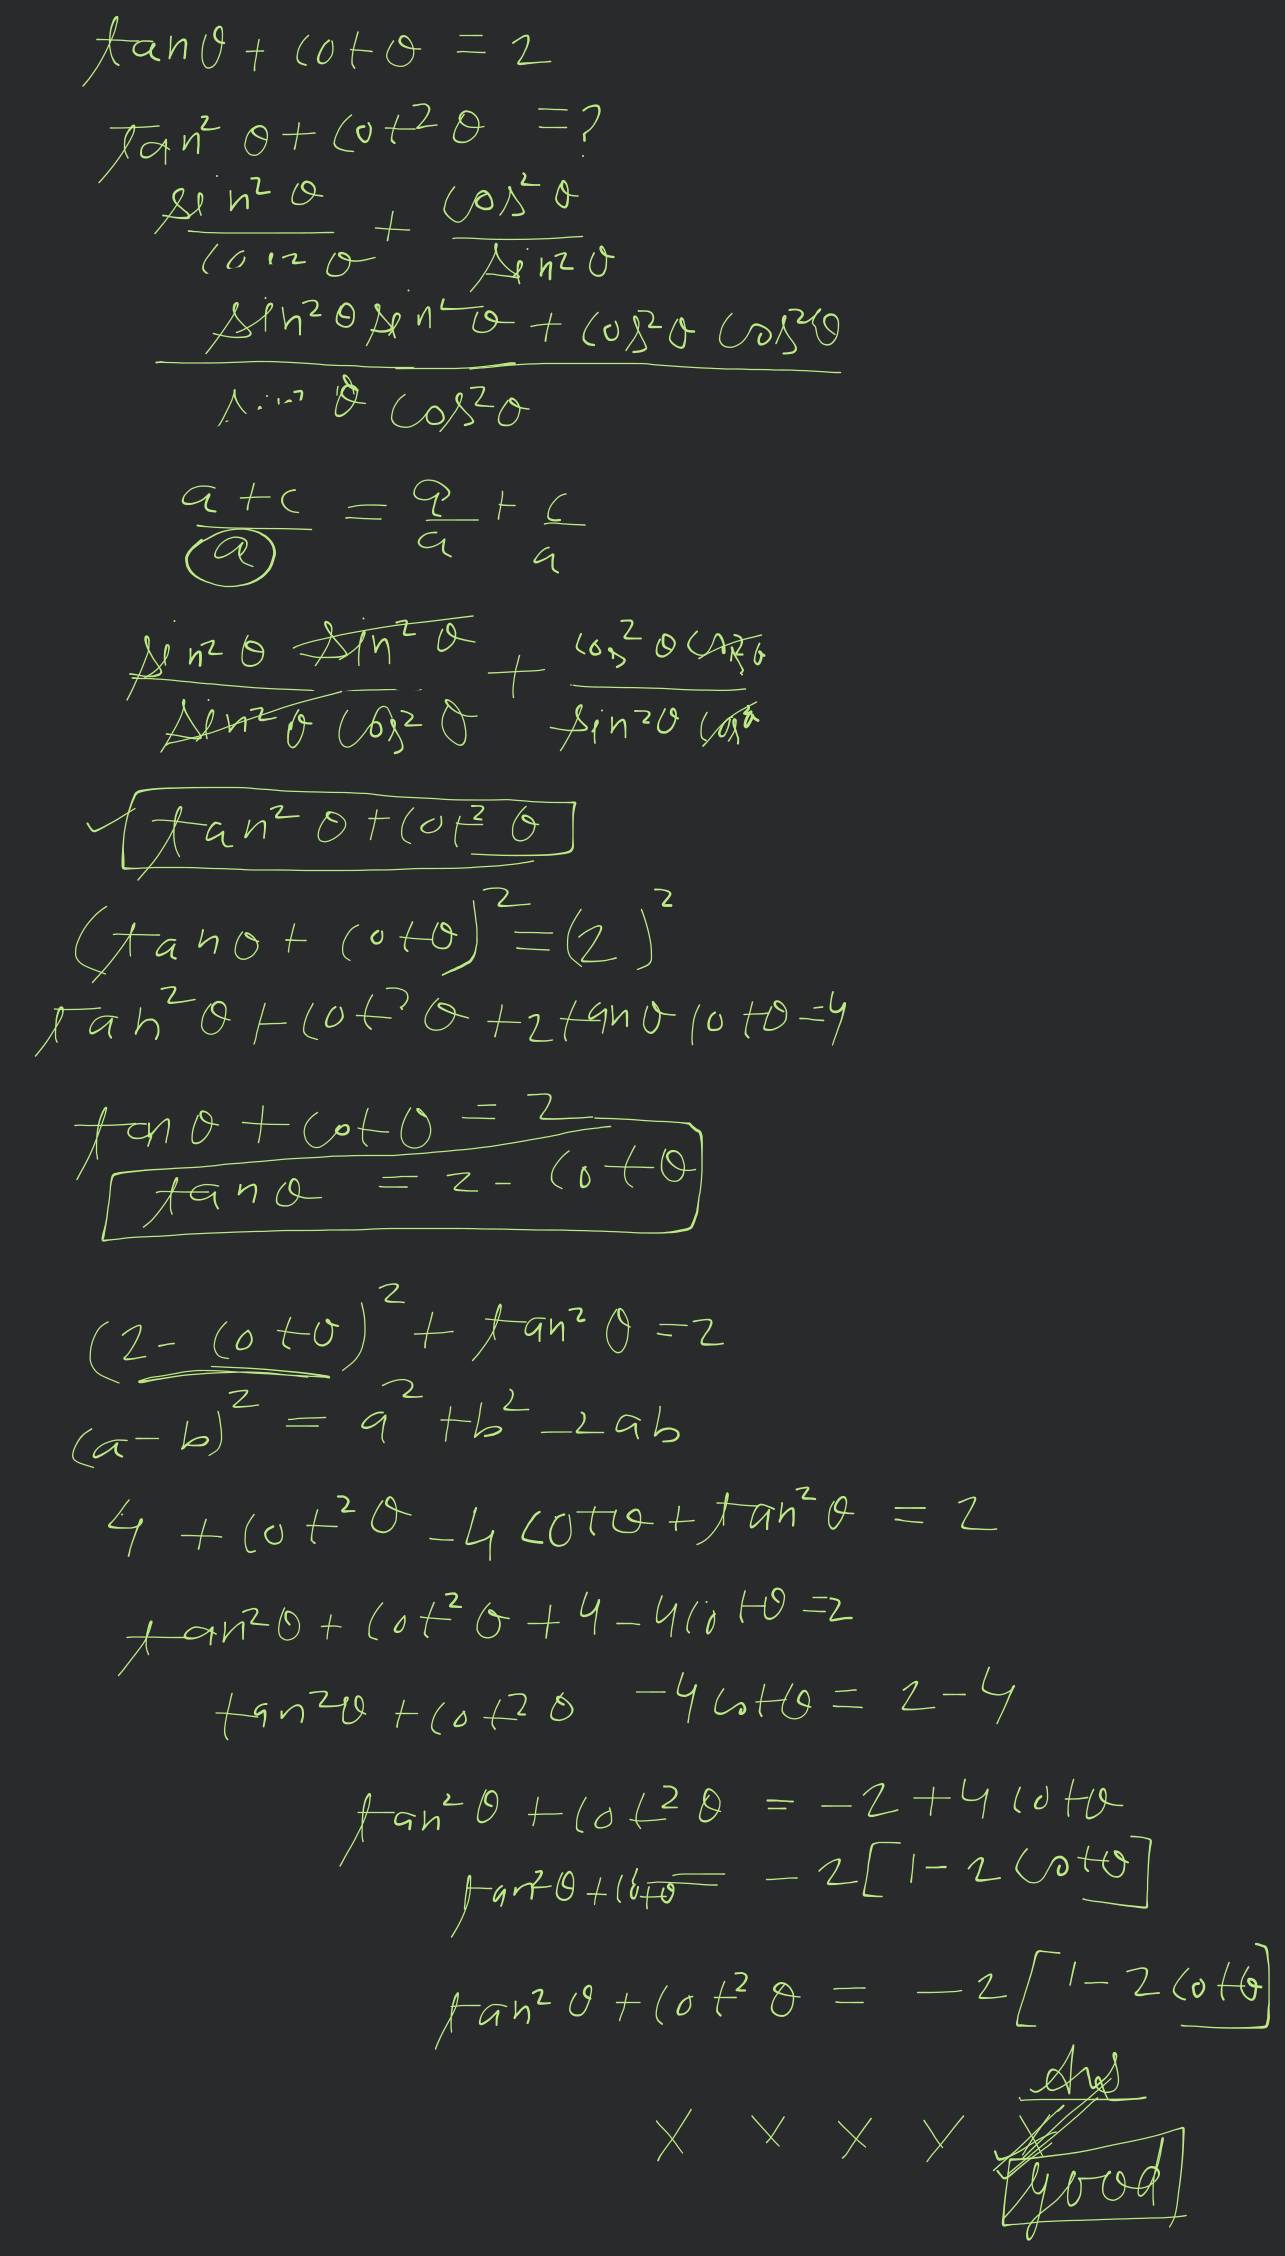 tanθ + cotθ = 2
tan² θ + cot² θ = ?
sin² θ / cos² θ + cos² θ / sin² θ
sin² θ sin² θ + cos² θ cos² θ
/ sin² θ cos² θ
a + c / a = a / a + c / a
sin² θ sin² θ / sin² θ cos² θ + cos² θ cos² θ / sin² θ cos²
tan² θ + cot² θ
(tanθ + cotθ)² = (2)²
tan² θ + cot² θ + 2 tanθ cotθ = 4
tanθ + cotθ = 2
tanθ = 2 - cotθ
(2 - cotθ)² + tan² θ = 2
(a - b)² = a² + b² - 2ab
4 + cot² θ - 4 cotθ + tan² θ = 2
tan² θ + cot² θ + 4 - 4 cotθ = 2
tan² θ + cot² θ - 4 cotθ = 2 - 4
tan² θ + cot² θ = -2 + 4 cotθ
tan² θ + cotθ = -2 [1 - 2 cotθ]
tan² θ + cot² θ = -2 [1 - 2 cotθ]
Ans
x x x y x
good